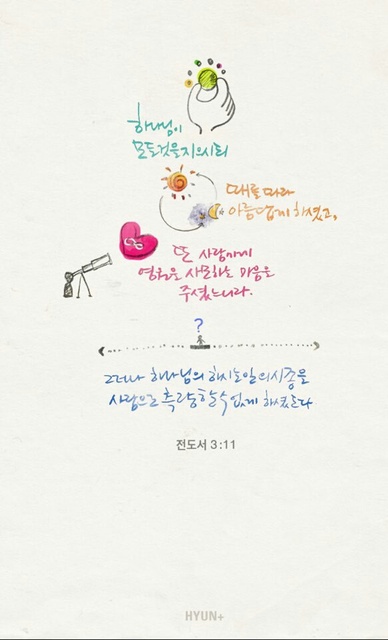 하나님이
모든것을지으시되
때를 따라
아름답게 하셨고,
또 사람에게
영원을 사모하는 마음을
주셨느니라.
?
그러나 하나님의 하시는일의시종을
사람으로 측량할수 없게 하셨도다
전도서 3:11
HYUN+